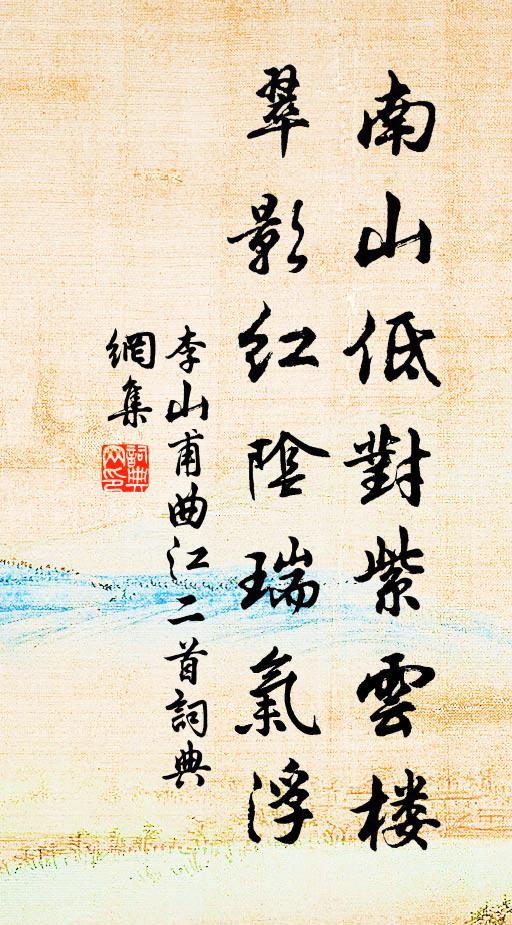 南山低對紫雲楼
翠影红陰瑞氣浮
李山甫曲江二首詞典
網集
詞典
网印